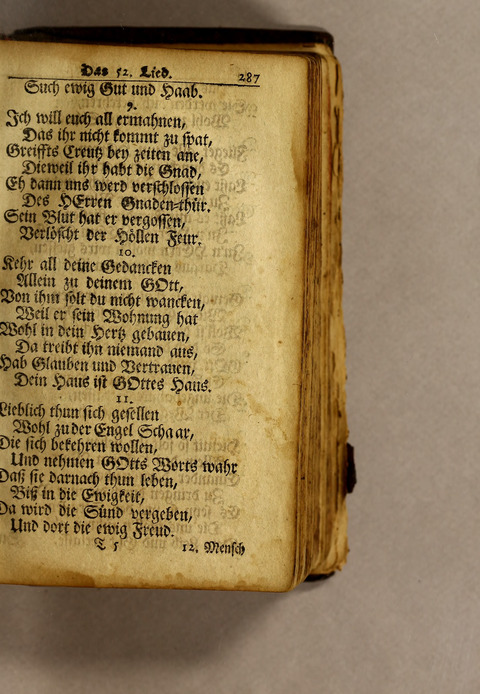 Das 52. Lied. 287
Such ewig Gut und Haab.
9.
Ich will euch all ermahnen,
Das ihr nicht kommt zu spat,
Greiffts Creutz bey zeiten ane,
Dieweil ihr habt die Gnad,
Eh dann uns werd verschlossen
Des HErren Gnaden-thür.
Sein Blut hat er vergossen,
Verlöscht der Höllen Feur.
10.
Kehr all deine Gedancken
Allein zu deinem GOtt,
Von ihm solt du nicht wancken,
Weil er sein Wohnung hat
Wohl in dein Hertz gebauen,
Da treibt ihn niemand aus,
Hab Glauben und Vertrauen,
Dein Haus ist GOttes Haus.
11.
Lieblich thun sich gesellen
Wohl zu der Engel Schaar,
Die sich bekehren wollen,
Und nehmen GOtts Worts wahr
Daß sie darnach thun leben,
Biß in die Ewigkeit,
Da wird die Sünd vergeben,
Und dort die ewig Freud.
T 5 12. Mensch